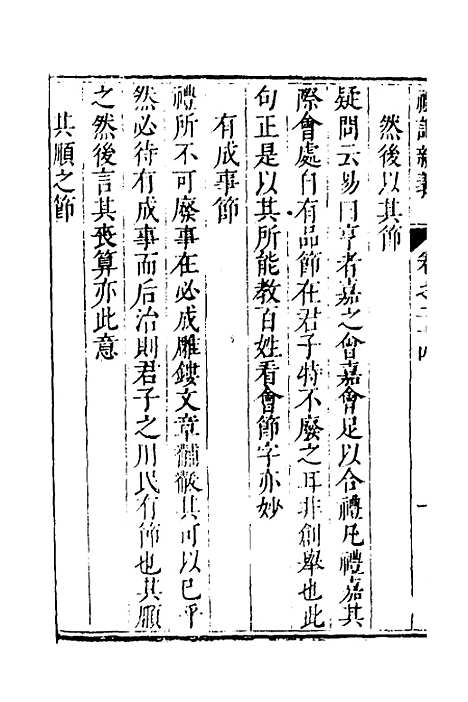 禮記新義　卷之二十四　一
然後以其節
疑問云易曰亨者嘉之會嘉會足以合禮凡禮嘉其
際會處自有品節在君子特不廢之耳非創舉也此
句正是以其所能教百姓看會節字亦妙
有成事節
禮所不可廢事在必成雕鏤文章黼黻其可以已乎
然必待有成事而后治則君子之用民有節也其順
之然後言其喪算亦此意
其順之節